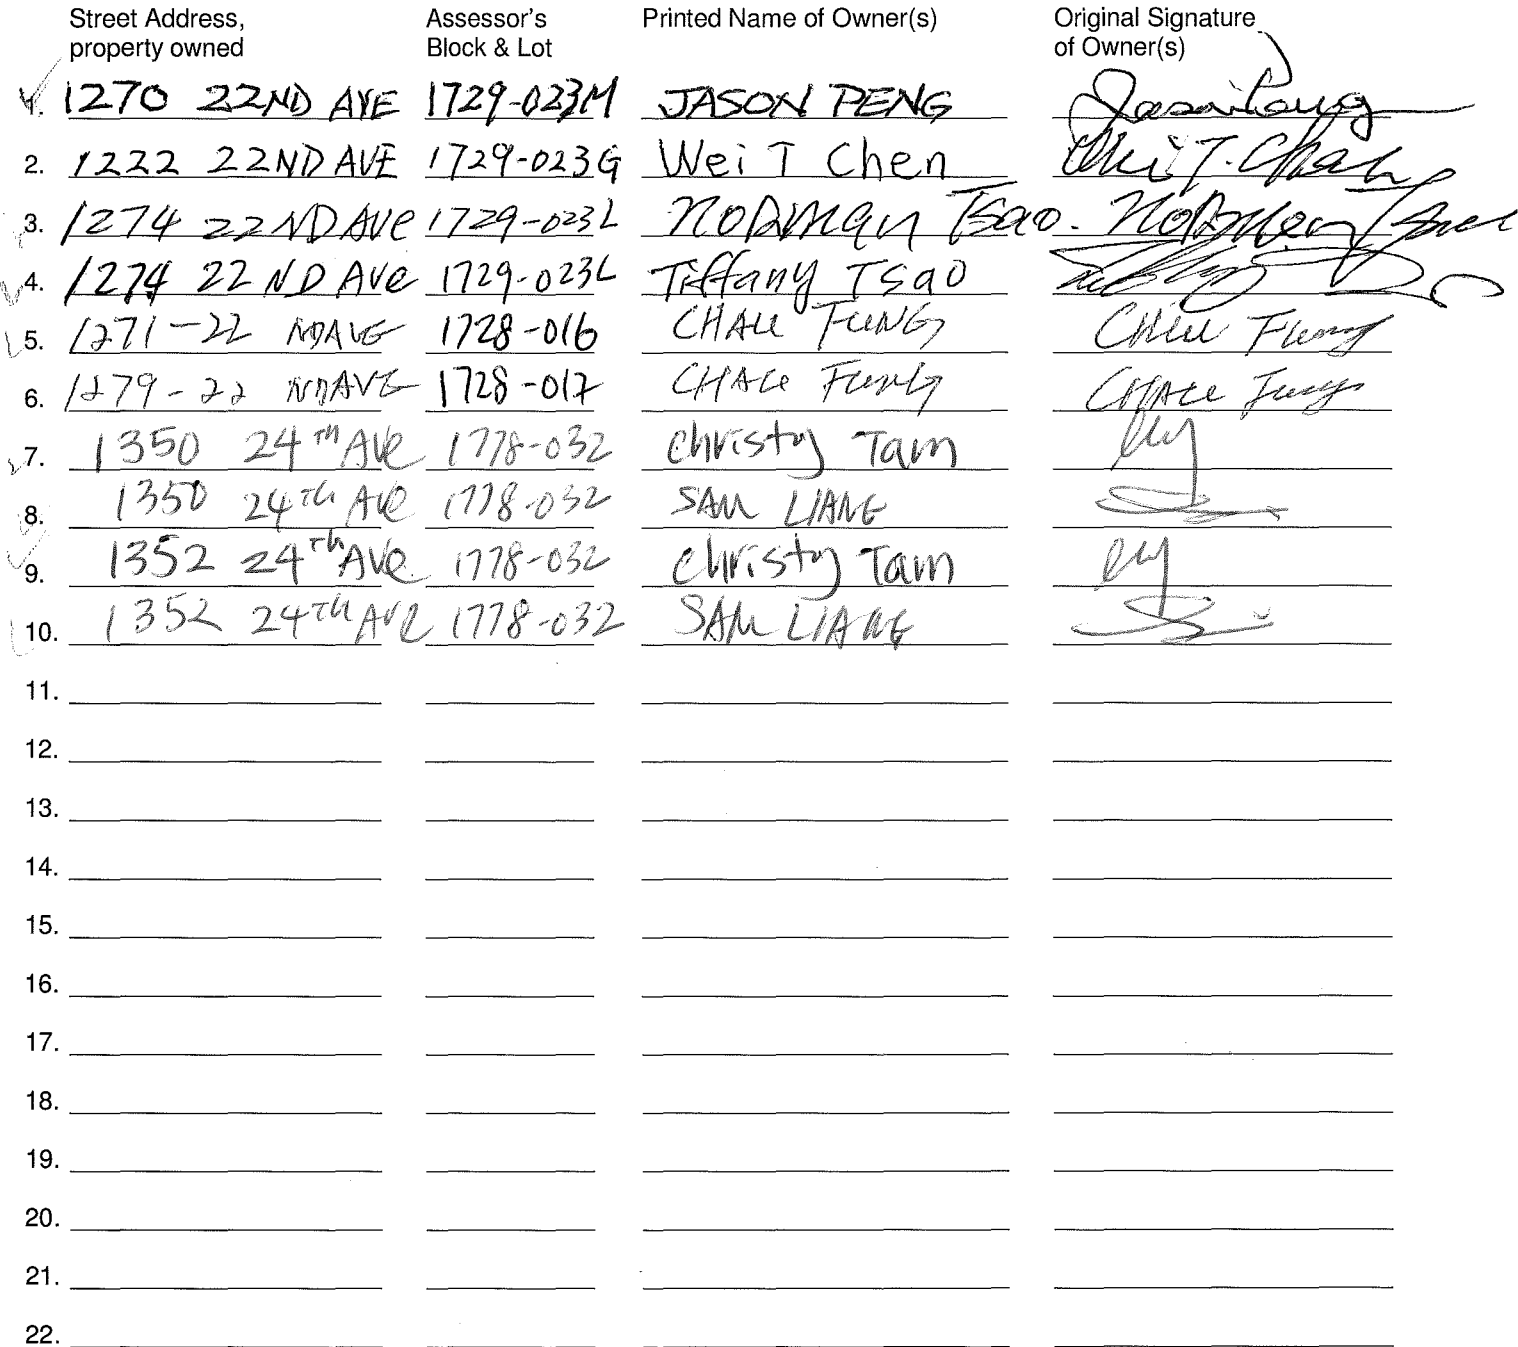 Street Address, property owned	Assessor's Block & Lot	Printed Name of Owner(s)	Original Signature of Owner(s)
1. 1270 22ND AVE 1729-023M JASON PENG Jason Peng
2. 1222 22ND AVE 1729-023G Wei T Chen Wei T. Chen
3. 1274 22NDAVe 1729-023L NORMAN Tsao. NORMAN Tsao
4. 1274 22 ND Ave 1729-023L Tiffany Tsao
5. 1271-22 NDAVE 1728-016 CHAU FUNG Chau Fung
6. 1279-22 NDAVE 1728-017 CHAU FUNG CHAU Fung
7. 1350 24TH Ave 1778-032 Christy Tam
8. 1350 24TH Ave 1778-032 SAM LIANG
9. 1352 24Th Ave 1778-032 Christy Tam
10. 1352 24TH AVe 1778-032 SAM LIANG
11.
12.
13.
14.
15.
16.
17.
18.
19.
20.
21.
22.